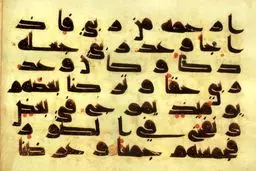 ا رحمة من ربي فاذ
ا جا وعد ربي جعله
دكا وكان وعد
ربي حقا وتركنا بعضهم
يومئذ يموج في بعض
ونفخ في الصور
فجمعنهم جمعا وعرضنا